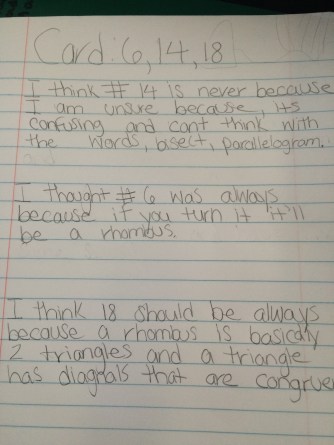 Card: 6, 14, 18
I think # 14 is never because
I am unsure because, its
confusing and cant think with
the words, bisect, parallelogram.
I thought # 6 was always
because if you turn it it'll
be a rhombus.
I think 18 should be always
because a rhombus is basicaly
2 triangles and a triangle
has diagnals that are congrue